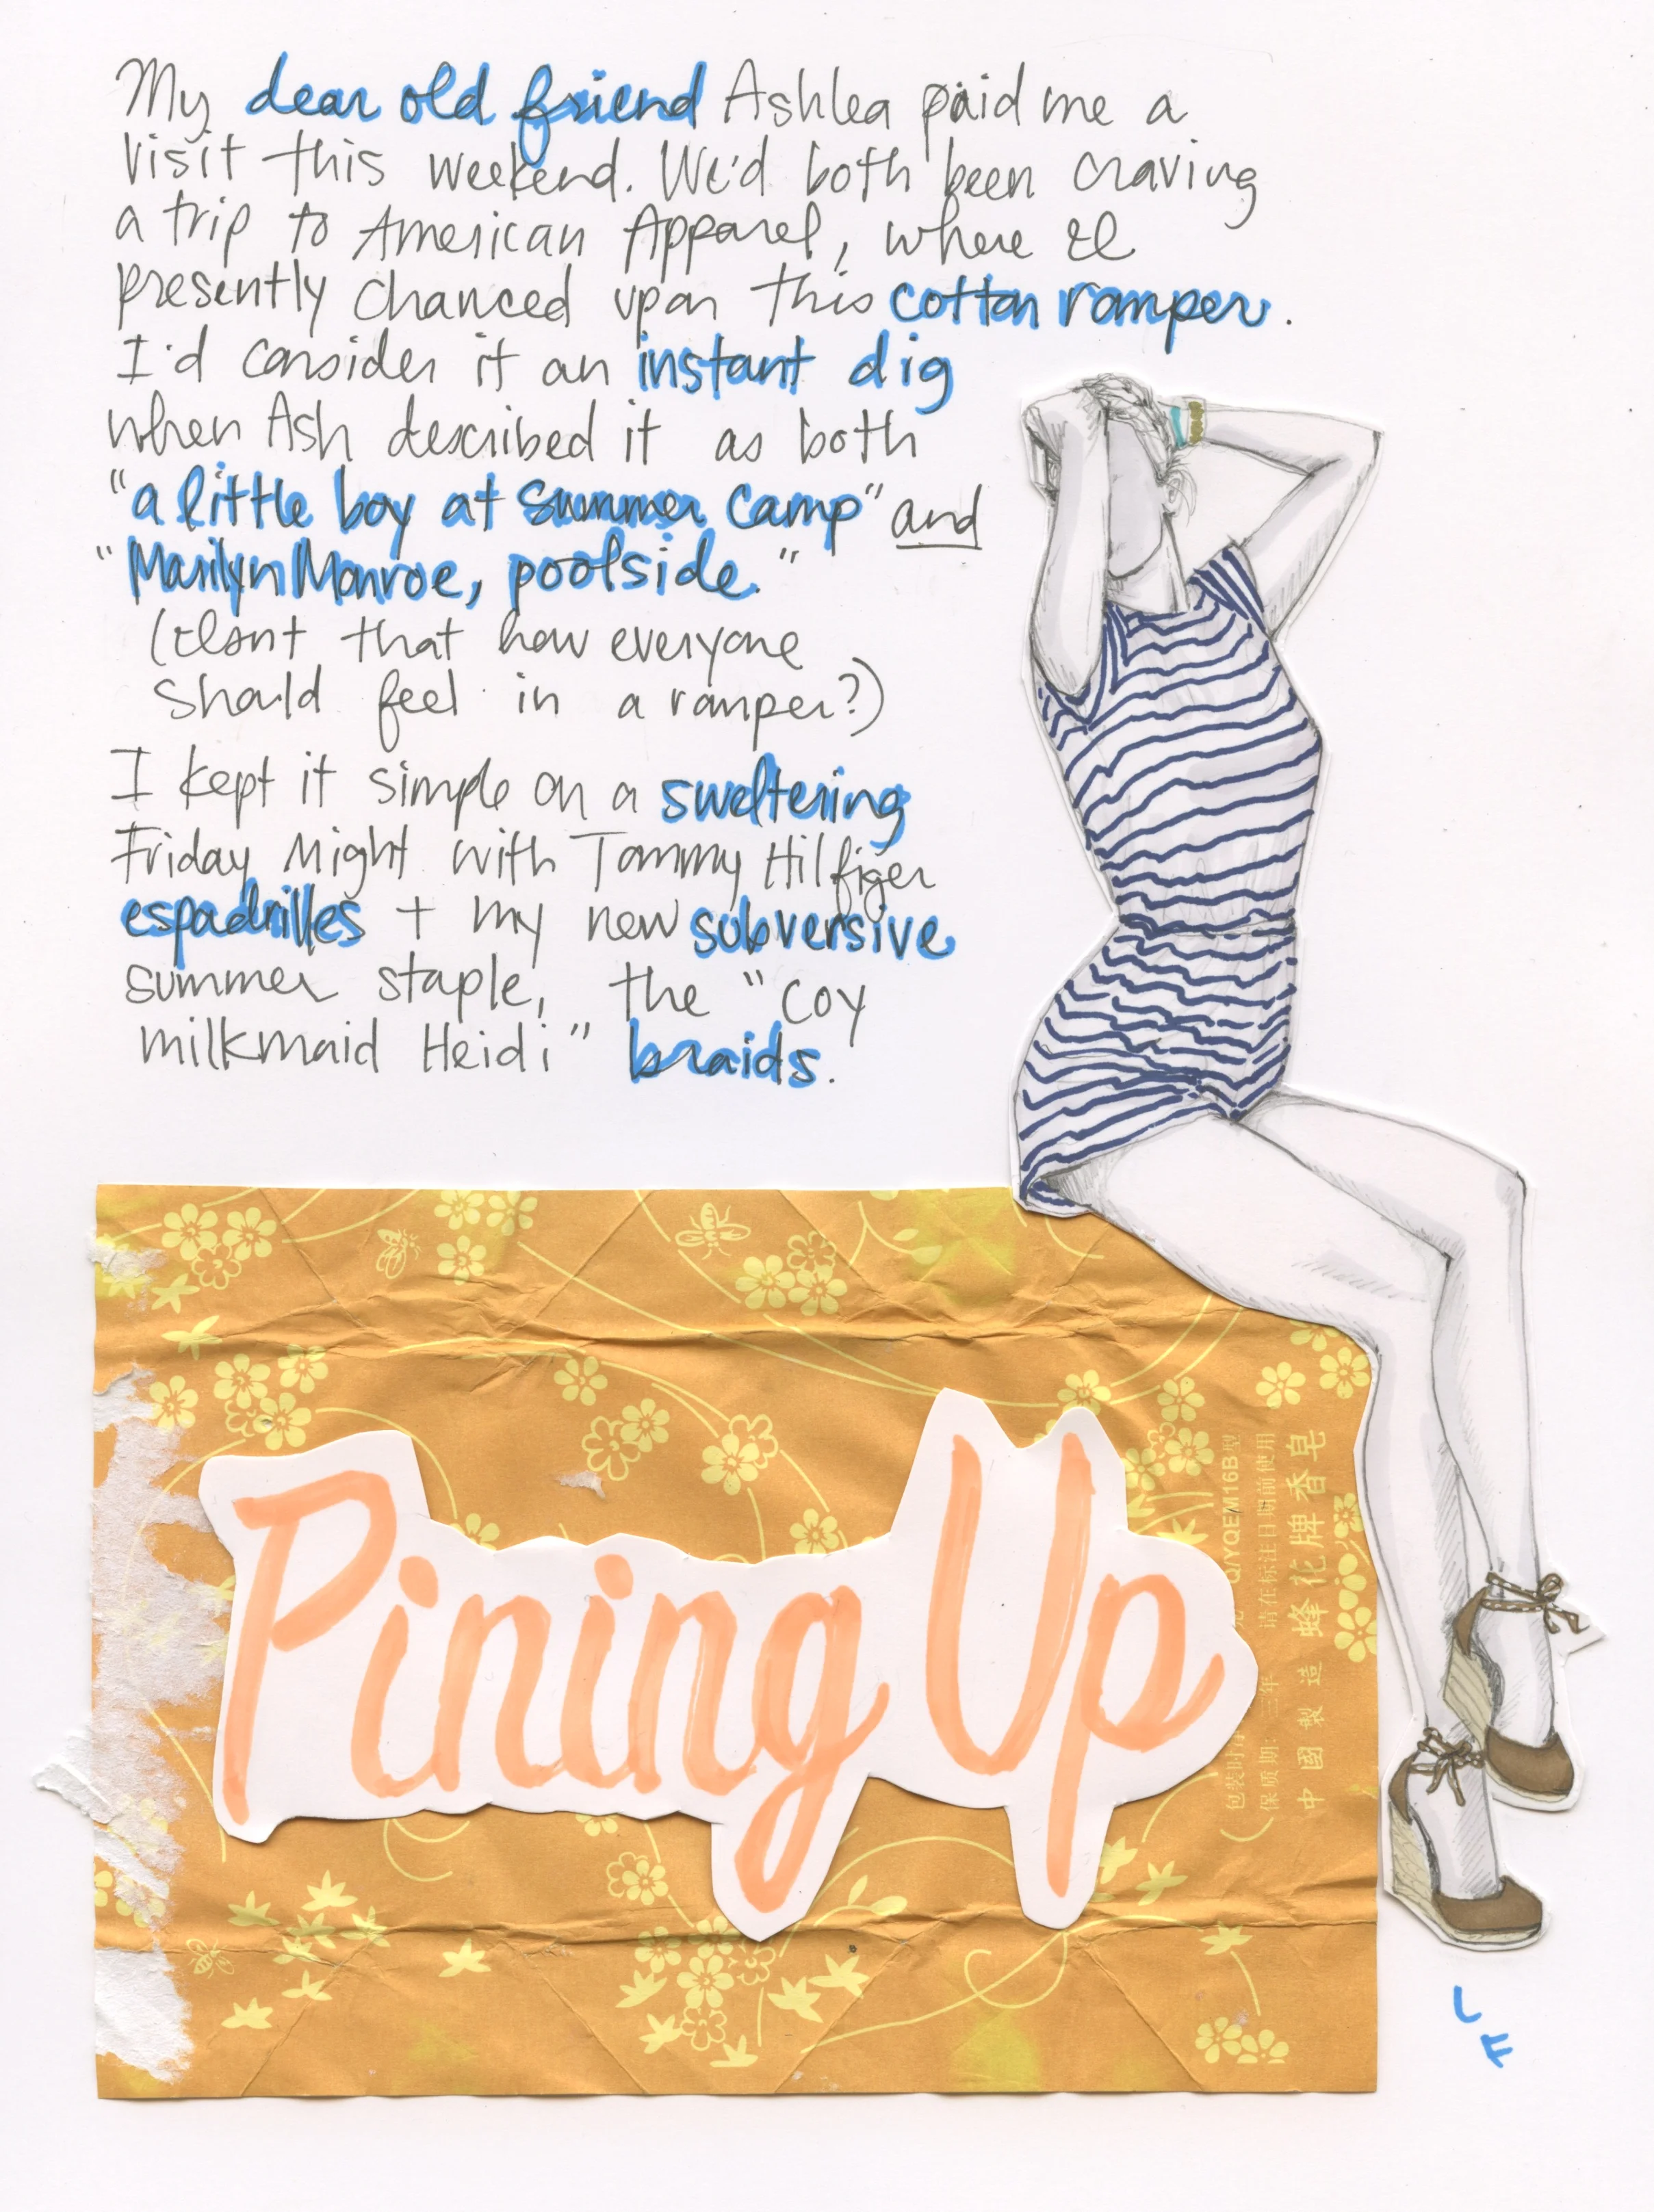 My dear old friend Ashlea paid me a
visit this weekend. We'd both been craving
a trip to American Apparel, where I
presently chanced upon this cotton romper.
I'd consider it an instant dig
when Ash described it as both
"a little boy at summer camp" and
"Marilyn Monroe, poolside."
(Isn't that how everyone
should feel in a romper?)
I kept it simple on a sweltering
Friday Night with Tommy Hilfiger
espadrilles + my new subversive
summer staple, the "coy
milkmaid Heidi" braids.
Pining Up
蜂花牌香皂
中國製造
请在标注日期前使用
保质期：三年
Q/YQEM16B型
L F